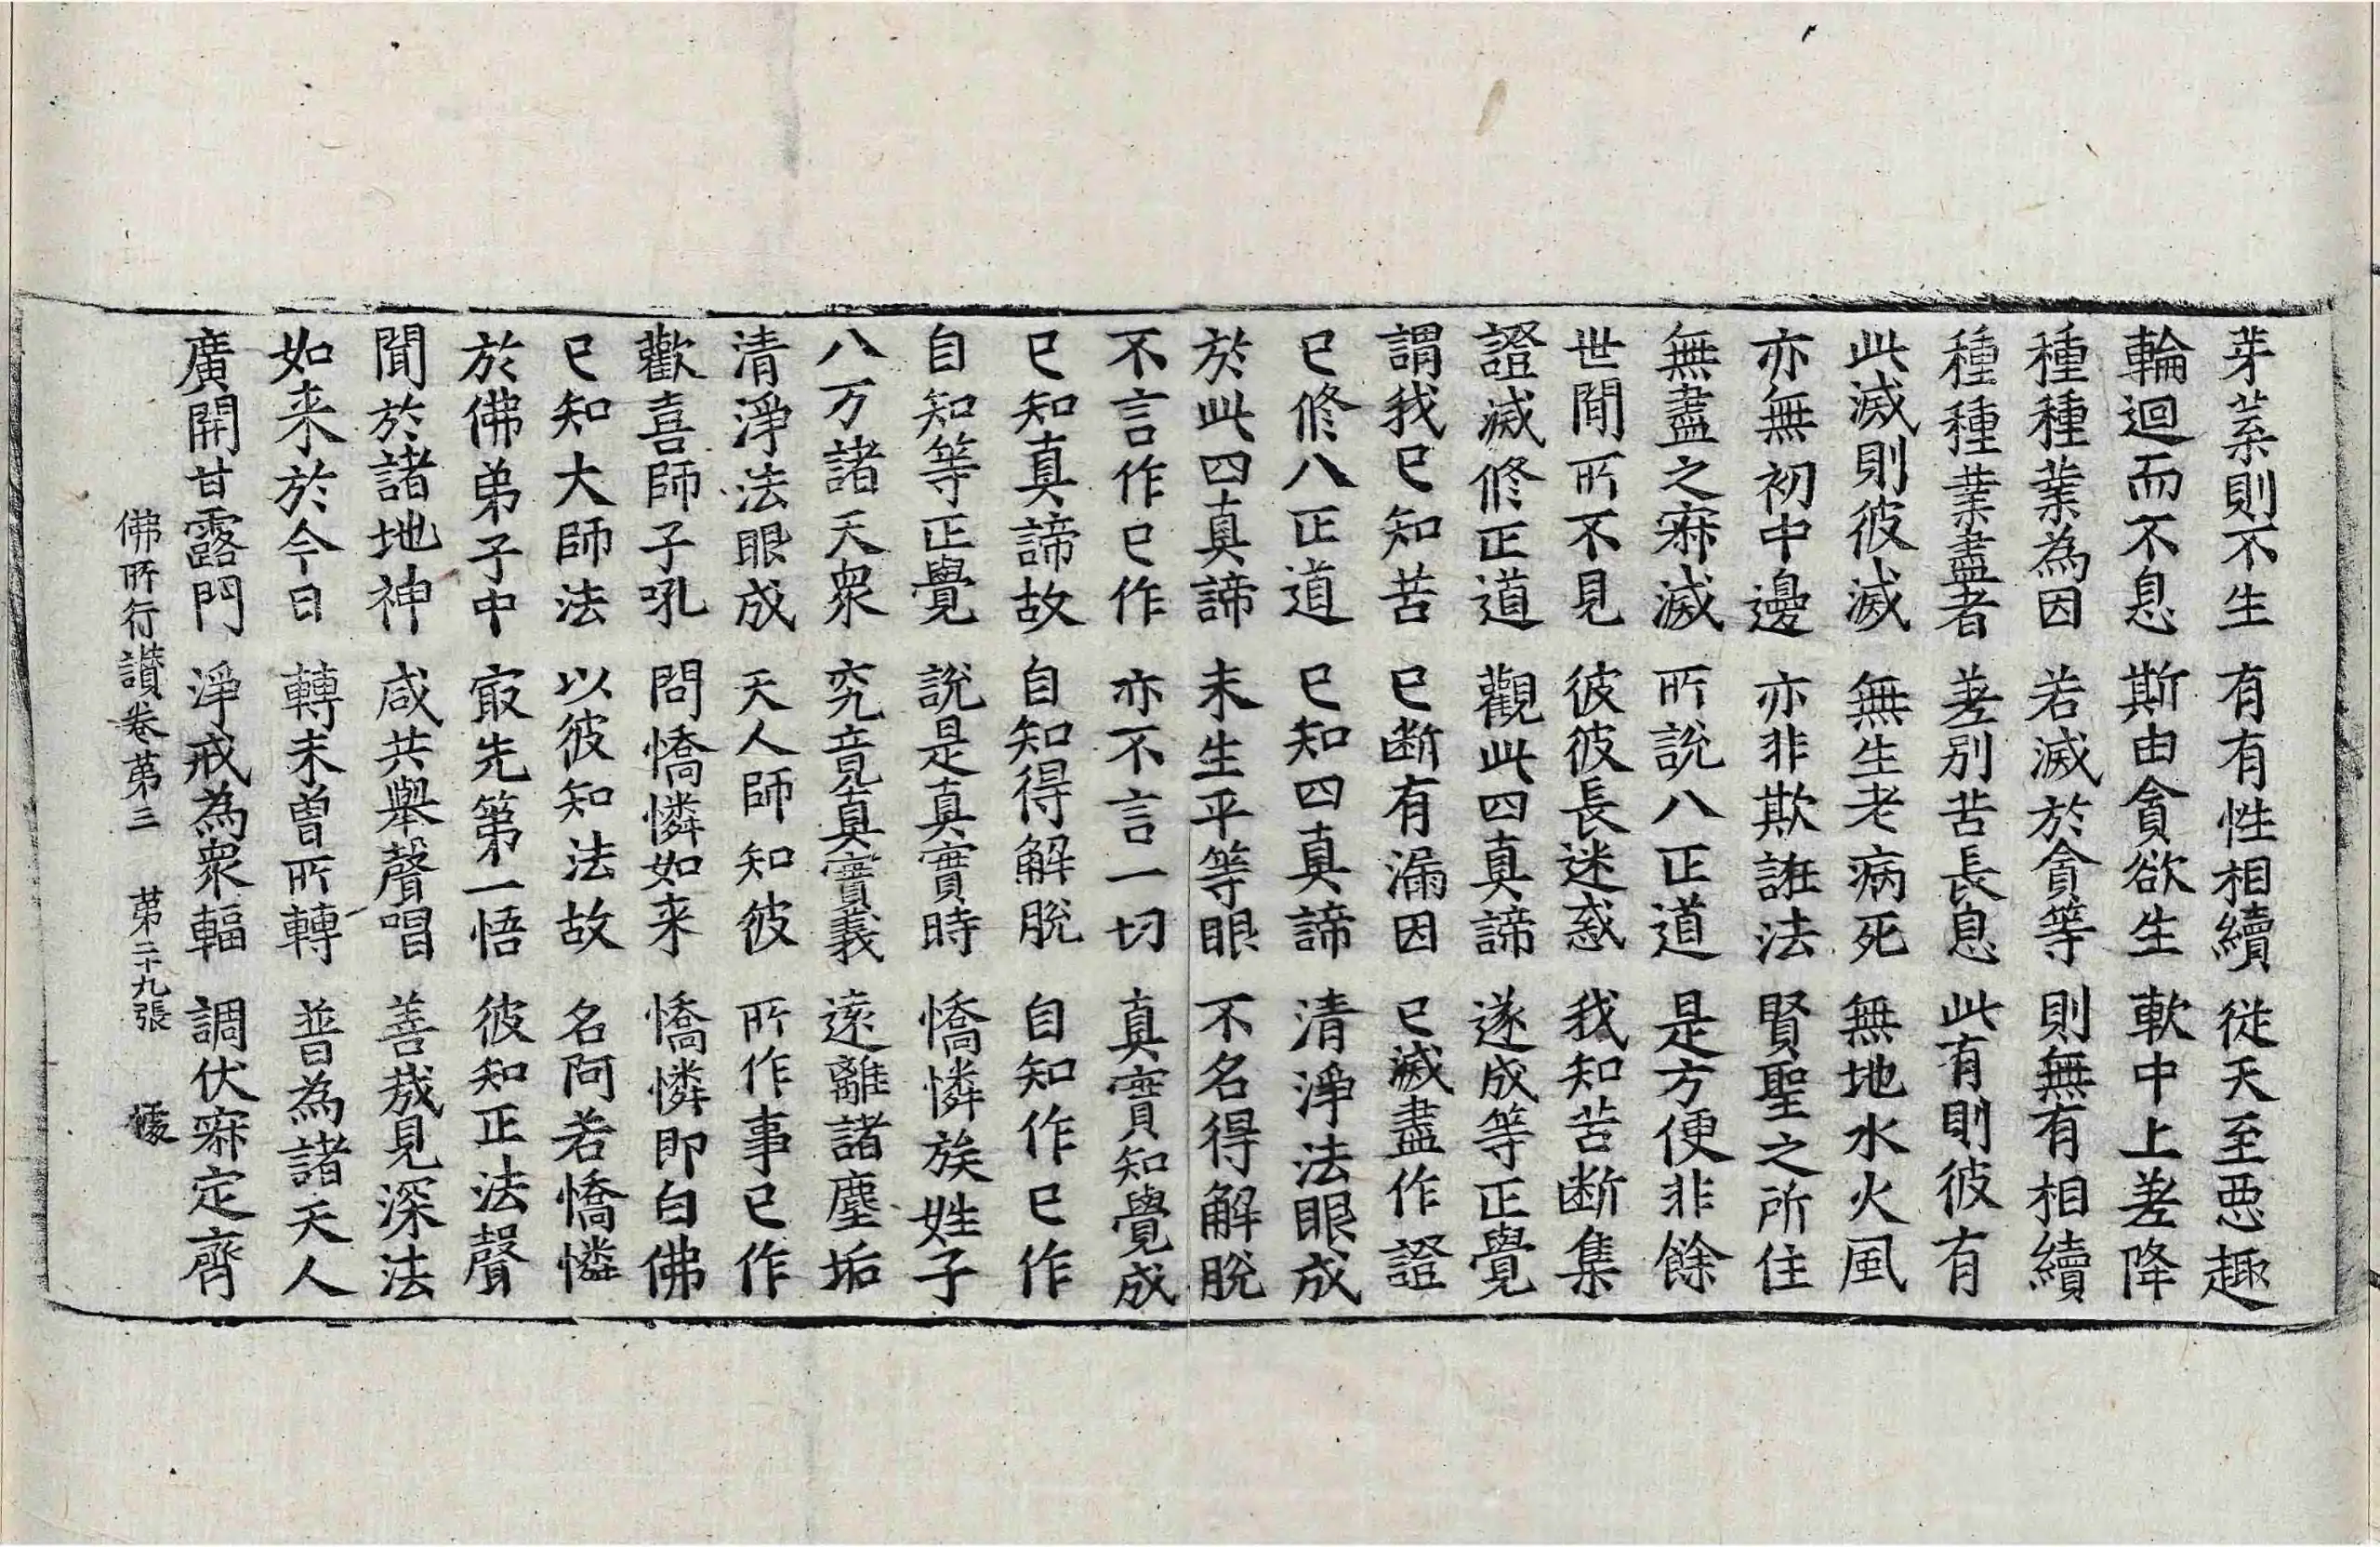 芽葉則不生 有有性相續 從天至惡趣
輪迴而不息 斯由貪欲生 軟中上差降
種種業為因 若滅於貪等 則無有相續
種種業盡者 差別苦長息 此有則彼有
此滅則彼滅 無生老病死 無地水火風
亦無初中邊 亦非欺誑法 賢聖之所住
無盡之寂滅 所說八正道 是方便非餘
世間所不見 彼彼長迷惑 我知苦断集
證滅修正道 觀此四真諦 遂成等正覺
謂我已知苦 已断有漏因 已滅盡作證
已修八正道 已知四真諦 清淨法眼成
於此四真諦 未生平等眼 不名得解脫
不言作已作 亦不言一切 真實知覺成
已知真諦故 自知得解脫 自知作已作
自知等正覺 說是真實時 憍憐族姓子
八万諸天衆 究竟真實義 遠離諸塵垢
清淨法眼成 天人師知彼 所作事已作
歡喜師子吼 問憍憐如来 憍憐即白佛
已知大師法 以彼知法故 名阿若憍憐
於佛弟子中 最先第一悟 彼知正法聲
聞於諸地神 咸共舉聲唱 善哉見深法
如来於今日 轉未曾所轉 普為諸天人
廣開甘露門 淨戒為衆輻 調伏寂定齊
佛所行讃卷第三 第二十九張